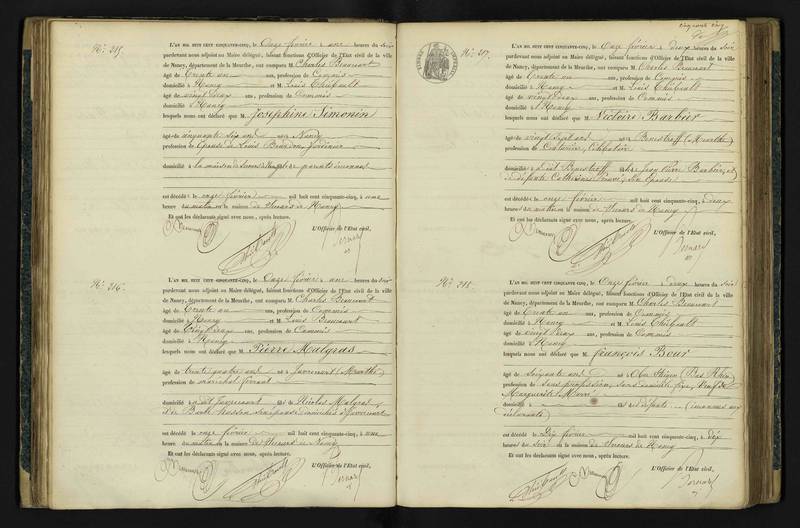 N.° 215.
L'AN MIL HUIT CENT CINQUANTE-CINQ, le Onze février à une heures du Soir
pardevant nous adjoint au Maire délégué, faisant fonctions d'Officier de l'État civil de la ville
de Nancy, département de la Meurthe, ont comparu M. Charles Beaucourt
âgé de Trente un ans, profession de Commis
domicilié à Nancy et M. Louis Thiébault
âgé de vingt deux ans, profession de Commis
domicilié à Nancy
lesquels nous ont déclaré que M. Josephine Simonin
âgé de cinquante six ans né à Nancy
profession de Epouse de Louis
domicilié à la maison de Secours de parents inconnus
est décédé le onze février mil huit cent cinquante-cinq, à une
heure du matin en la maison de Secours de Nancy
Et ont les déclarants signé avec nous, après lecture.
L'Officier de l'État civil,
Bernard
N.° 216.
L'AN MIL HUIT CENT CINQUANTE-CINQ, le Onze février à une heures du Soir
pardevant nous adjoint au Maire délégué, faisant fonctions d'Officier de l'État civil de la ville
de Nancy, département de la Meurthe, ont comparu M. Charles Beaucourt
âgé de Trente un ans, profession de Commis
domicilié à Nancy et M. Louis
âgé de vingt deux ans, profession de Commis
domicilié à Nancy
lesquels nous ont déclaré que M. Pierre Malgras
âgé de trente quatre ans né à (Meurthe)
profession de maréchal ferrant
domicilié à fils de Nicolas Malgras
son épouse domiciliés à
est décédé le onze février mil huit cent cinquante-cinq, à une
heure du matin en la maison de Secours de Nancy
Et ont les déclarants signé avec nous, après lecture.
L'Officier de l'État civil,
Bernard
N.° 217.
L'AN MIL HUIT CENT CINQUANTE-CINQ, le Onze février à deux heures du Soir
pardevant nous adjoint au Maire délégué, faisant fonctions d'Officier de l'État civil de la ville
de Nancy, département de la Meurthe, ont comparu M. Charles Beaucourt
âgé de Trente un ans, profession de Commis
domicilié à Nancy et M. Louis Thiébault
âgé de vingt deux ans, profession de Commis
domicilié à Nancy
lesquels nous ont déclaré que M. Victoire Barbier
âgé de vingt sept ans né à Benestroff (Meurthe)
profession de Couturière, célibataire
domicilié à dit Benestroff fille de Jean Pierre Barbier, et
de défunte Catherine son épouse
est décédé le onze février mil huit cent cinquante-cinq, à deux
heures du matin en la maison de Secours de Nancy
Et ont les déclarants signé avec nous, après lecture.
L'Officier de l'État civil,
Bernard
N.° 218.
L'AN MIL HUIT CENT CINQUANTE-CINQ, le Onze février à deux heures du Soir
pardevant nous adjoint au Maire délégué, faisant fonctions d'Officier de l'État civil de la ville
de Nancy, département de la Meurthe, ont comparu M. Charles Beaucourt
âgé de Trente un ans, profession de Commis
domicilié à Nancy et M. Louis Thiébault
âgé de vingt deux ans, profession de Commis
domicilié à Nancy
lesquels nous ont déclaré que M. François Bour
âgé de Soixante ans né à (Bas Rhin)
profession de sans profession, sans domicile fixe, Veuf de
Marguerite
domicilié à fils de défunts (inconnus aux
déclarants)
est décédé le Dix février mil huit cent cinquante-cinq, à dix
heures du Soir en la maison de Secours de Nancy
Et ont les déclarants signé avec nous, après lecture.
L'Officier de l'État civil,
Bernard